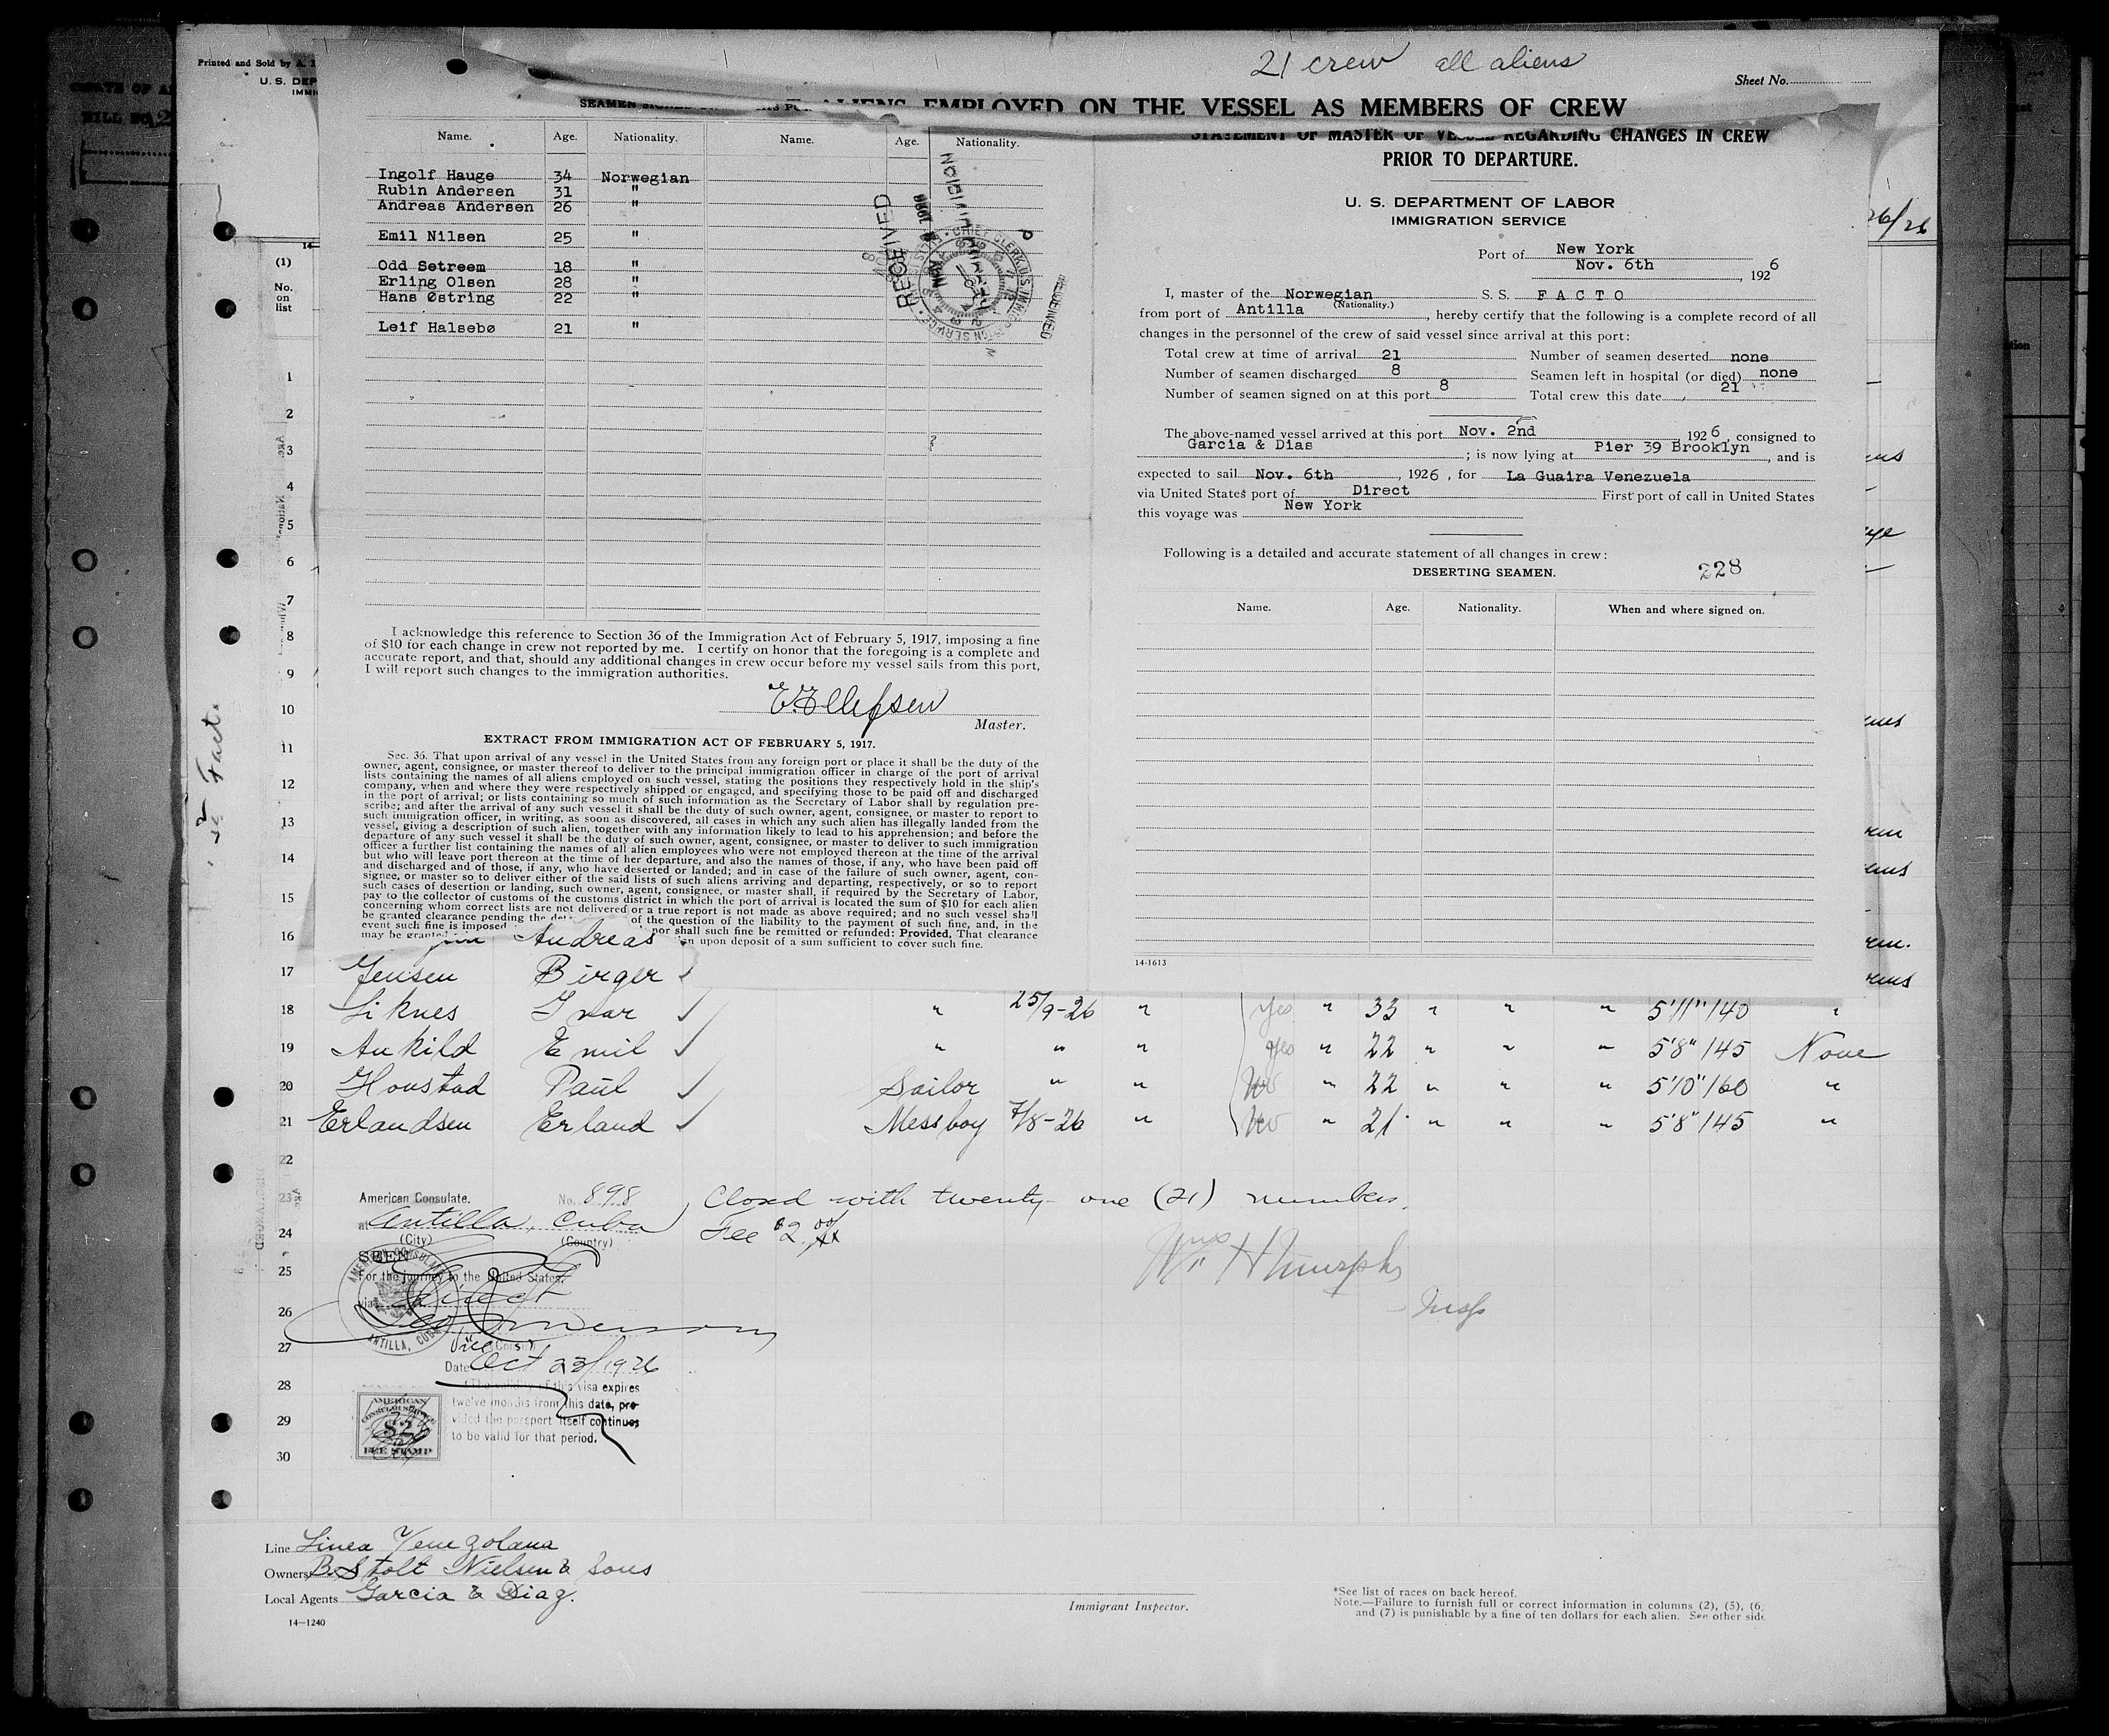 21 crew all aliens
Printed and Sold by A.
Sheet No.
U. S. DEP
IMMI
ALIENS EMPLOYED ON THE VESSEL AS MEMBERS OF CREW
Name. Age. Nationality. Name. Age. Nationality.
Ingolf Hauge 34 Norwegian
Rubin Andersen 31 "
Andreas Andersen 26 "
Emil Nilsen 25 "
Odd Setreem 18 "
Erling Olsen 28 "
Hans Østring 22 "
Leif Halsebø 21 "
RECEIVED
I acknowledge this reference to Section 36 of the Immigration Act of February 5, 1917, imposing a fine
of $10 for each change in crew not reported by me. I certify on honor that the foregoing is a complete and
accurate report, and that, should any additional changes in crew occur before my vessel sails from this port,
I will report such changes to the immigration authorities.
E. Ellefsen
Master.
EXTRACT FROM IMMIGRATION ACT OF FEBRUARY 5, 1917.
Sec. 36. That upon arrival of any vessel in the United States from any foreign port or place it shall be the duty of the
owner, agent, consignee, or master thereof to deliver to the principal immigration officer in charge of the port of arrival
lists containing the names of all aliens employed on such vessel, stating the positions they respectively hold in the ship's
company, when and where they were respectively shipped or engaged, and specifying those to be paid off and discharged
in the port of arrival; or lists containing so much of such information as the Secretary of Labor shall by regulation pre-
scribe; and after the arrival of any such vessel it shall be the duty of such owner, agent, consignee, or master to report to
such immigration officer, in writing, as soon as discovered, all cases in which any such alien has illegally landed from the
vessel, giving a description of such alien, together with any information likely to lead to his apprehension; and before the
departure of any such vessel it shall be the duty of such owner, agent, consignee, or master to deliver to such immigration
officer a further list containing the names of all alien employees who were not employed thereon at the time of the arrival
but who will leave port thereon at the time of her departure, and also the names of those, if any, who have been paid off
and discharged and of those, if any, who have deserted or landed; and in case of the failure of such owner, agent, con-
signee, or master so to deliver either of the said lists of such aliens arriving and departing, respectively, or so to report
such cases of desertion or landing, such owner, agent, consignee, or master shall, if required by the Secretary of Labor,
pay to the collector of customs of the customs district in which the port of arrival is located the sum of $10 for each alien
concerning whom correct lists are not delivered or a true report is not made as above required; and no such vessel shall
be granted clearance pending the of the question of the liability to the payment of such fine, and, in the
event such fine is imposed nor shall such fine be remitted or refunded: Provided, That clearance
may be granted upon deposit of a sum sufficient to cover such fine.
STATEMENT OF MASTER OF VESSEL REGARDING CHANGES IN CREW
PRIOR TO DEPARTURE.
U. S. DEPARTMENT OF LABOR
IMMIGRATION SERVICE
Port of New York
Nov. 6th, 1926
I, master of the Norwegian S. S. FACTO
(Nationality.)
from port of Antilla, hereby certify that the following is a complete record of all
changes in the personnel of the crew of said vessel since arrival at this port:
Total crew at time of arrival 21 Number of seamen deserted none
Number of seamen discharged 8 Seamen left in hospital (or died) none
Number of seamen signed on at this port 8 Total crew this date 21
The above-named vessel arrived at this port Nov. 2nd 1926, consigned to
Garcia & Dias; is now lying at Pier 39 Brooklyn, and is
expected to sail Nov. 6th, 1926, for La Guaira Venezuela
via United States port of Direct First port of call in United States
this voyage was New York
Following is a detailed and accurate statement of all changes in crew:
DESERTING SEAMEN. 228
Name. Age. Nationality. When and where signed on.
14-1613
(1)
No.
on
list
1
2
3
4
5
6
7
8
9
10
11
12
13
14
15
16 Andreas
17 Jensen Birger
18 Liknes Ivar " 25/9-26 " Yes " 33 " " " 5'11" 140 "
19 Aukild Emil " " " Yes " 22 " " " 5'8" 145 None
20 Honstad Paul Sailor " " No " 22 " " " 5'10" 160 "
21 Erlandsen Erland Messboy 7/8-26 " No " 21 " " " 5'8" 145 "
22
23
24
25
26
27
28
29
30
American Consulate. No. 898
at Antilla, Cuba
(City) (Country)
Closed with twenty-one (21) members.
Fee $2.00
SEEN
For the journey to the United States.
via Direct
AMERICAN CONSULAR
ANTILLA, CUBA
Vice Consul
Date Oct 23/1926
The validity of this visa expires
twelve months from this date, pro-
vided the passport itself continues
to be valid for that period.
AMERICAN
CONSULAR SERVICE
$2
FEE STAMP
Wm H Murphy
Insp
Line Linea Venezolana
Owners B. Stolt Nielsen & Sons
Local Agents Garcia & Diaz.
14-1240
Immigrant Inspector.
*See list of races on back hereof.
Note.—Failure to furnish full or correct information in columns (2), (5), (6,
and (7) is punishable by a fine of ten dollars for each alien. See other side